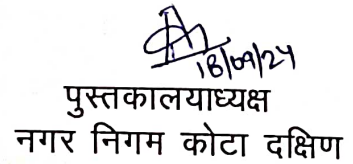 18/09/24
पुस्तकालयाध्यक्ष
नगर निगम कोटा दक्षिण